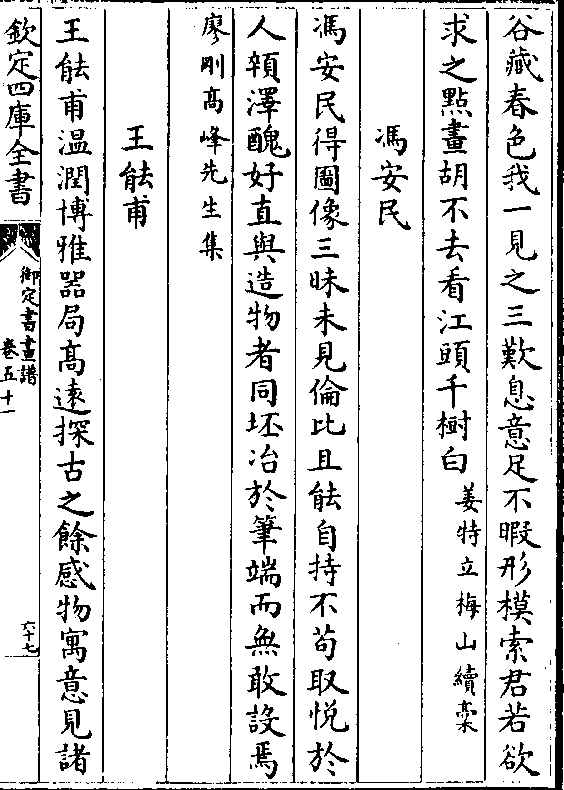 谷藏春色我一見之三歎息意足不暇形模索君若欲
求之點畫胡不去看江頭千樹白姜特立梅山續稾
馮安民
馮安民得圖像三昧未見倫比且能自持不苟取悅於
人顡澤醜好直與造物者同坯冶於筆端而無敢設焉
廖剛高峰先生集
王能甫
王能甫温潤博雅器局高遠探古之餘感物寓意見諸
欽定四庫全書
御定書畫譜
卷五十一
六十七